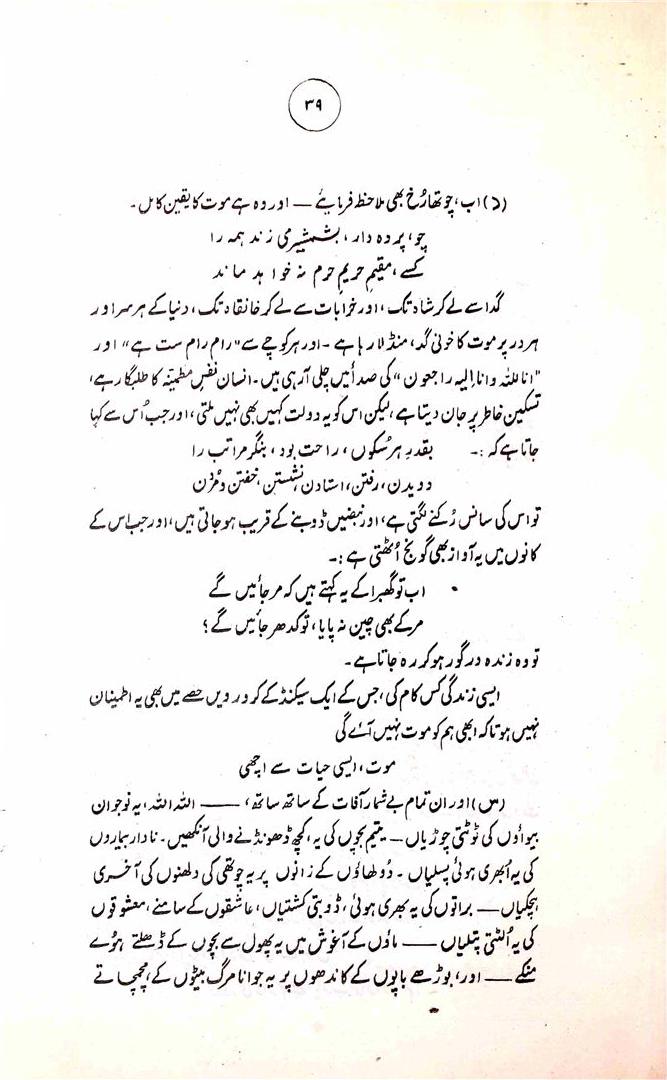 ۳۹
(د) اب، چوتھا رُخ بھی ملاحظہ فرمائیے — اور وہ ہے موت کا یقین کامل۔
چو، پردہ دار، بشمشیر می زند ہمہ را
کسے، مقیم حریمِ حرم نہ خواہد ماند
گدا سے لے کر شاہ تک، اور خرابات سے لے کر خانقاہ تک، دنیا کے ہر سر اور
ہر در پر موت کا خونی گدھ، منڈلا رہا ہے۔ اور ہر کوچے سے "رام رام ست ہے" اور
"انا للہ وانا الیہ راجعون" کی صدائیں چلی آ رہی ہیں۔ انسان نفسِ مطمئنہ کا طلبگار ہے،
تسکینِ خاطر پر جان دیتا ہے، لیکن اس کو یہ دولت کہیں بھی نہیں ملتی، اور جب اُس سے کہا
جاتا ہے کہ :۔ بقدرِ ہر سُکوں، راحت بود، بنگر مراتب را
دویدن، رفتن، استادن، نشستن، خفتن و مُردن
تو اس کی سانس رُکنے لگتی ہے، اور نبضیں ڈوبنے کے قریب ہو جاتی ہیں، اور جب اس کے
کانوں میں یہ آواز بھی گونج اُٹھتی ہے :۔
اب تو گھبرا کے یہ کہتے ہیں کہ مر جائیں گے
مر کے بھی چین نہ پایا، تو کدھر جائیں گے ؟
تو وہ زندہ در گور ہو کر رہ جاتا ہے۔
ایسی زندگی کس کام کی، جس کے ایک سیکنڈ کے کرورویں حصے میں بھی یہ اطمینان
نہیں ہوتا کہ ابھی ہم کو موت نہیں آئے گی
موت، ایسی حیات سے اچھی
(س) اور ان تمام بے شمار آفات کے ساتھ ساتھ، — اللہ اللہ، یہ نوجوان
بیواؤں کی ٹوٹتی چوڑیاں — یتیم بچوں کی یہ، کچھ ڈھونڈنے والی آنکھیں۔ نادار بیماروں
کی یہ اُبھری ہوئی پسلیاں۔ دُولھاؤں کے زانوں پر یہ چوتھی کی دلھنوں کی آخری
ہچکیاں — براتوں کی یہ بھری ہوئی، ڈوبتی کشتیاں، عاشقوں کے سامنے، معشوقوں
کی یہ اُلٹتی پتلیاں — ماؤں کے آغوش میں یہ پھول سے بچوں کے ڈھلتے ہوئے
منکے — اور، بوڑھے باپوں کے کاندھوں پر یہ جوانا مرگ بیٹوں کے، مچمچاتے